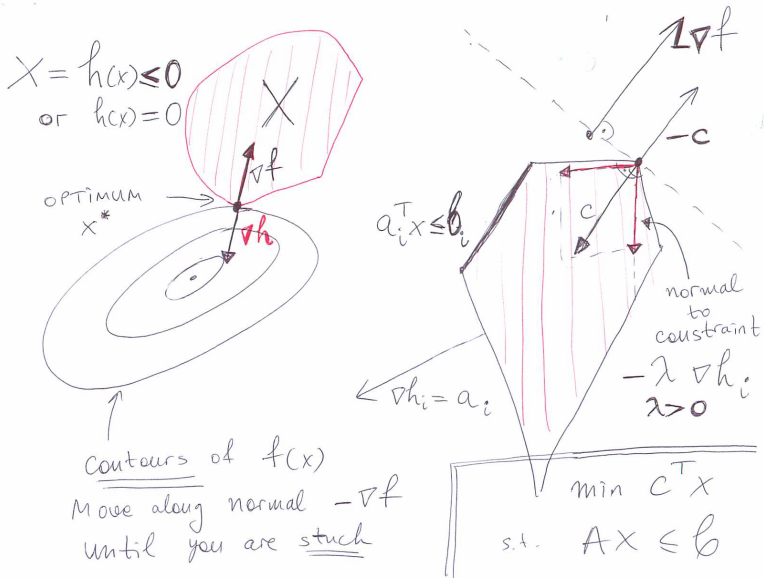 X = h(x) ≤ 0
or h(x) = 0
X
∇f
OPTIMUM
x*
∇h
contours of f(x)
Move along normal -∇f
until you are stuck
1∇f
-c
c
aᵢᵀx ≤ bᵢ
normal
to
constraint
-λ ∇hᵢ
λ>0
∇hᵢ = aᵢ
min cᵀx
s.t. Ax ≤ b